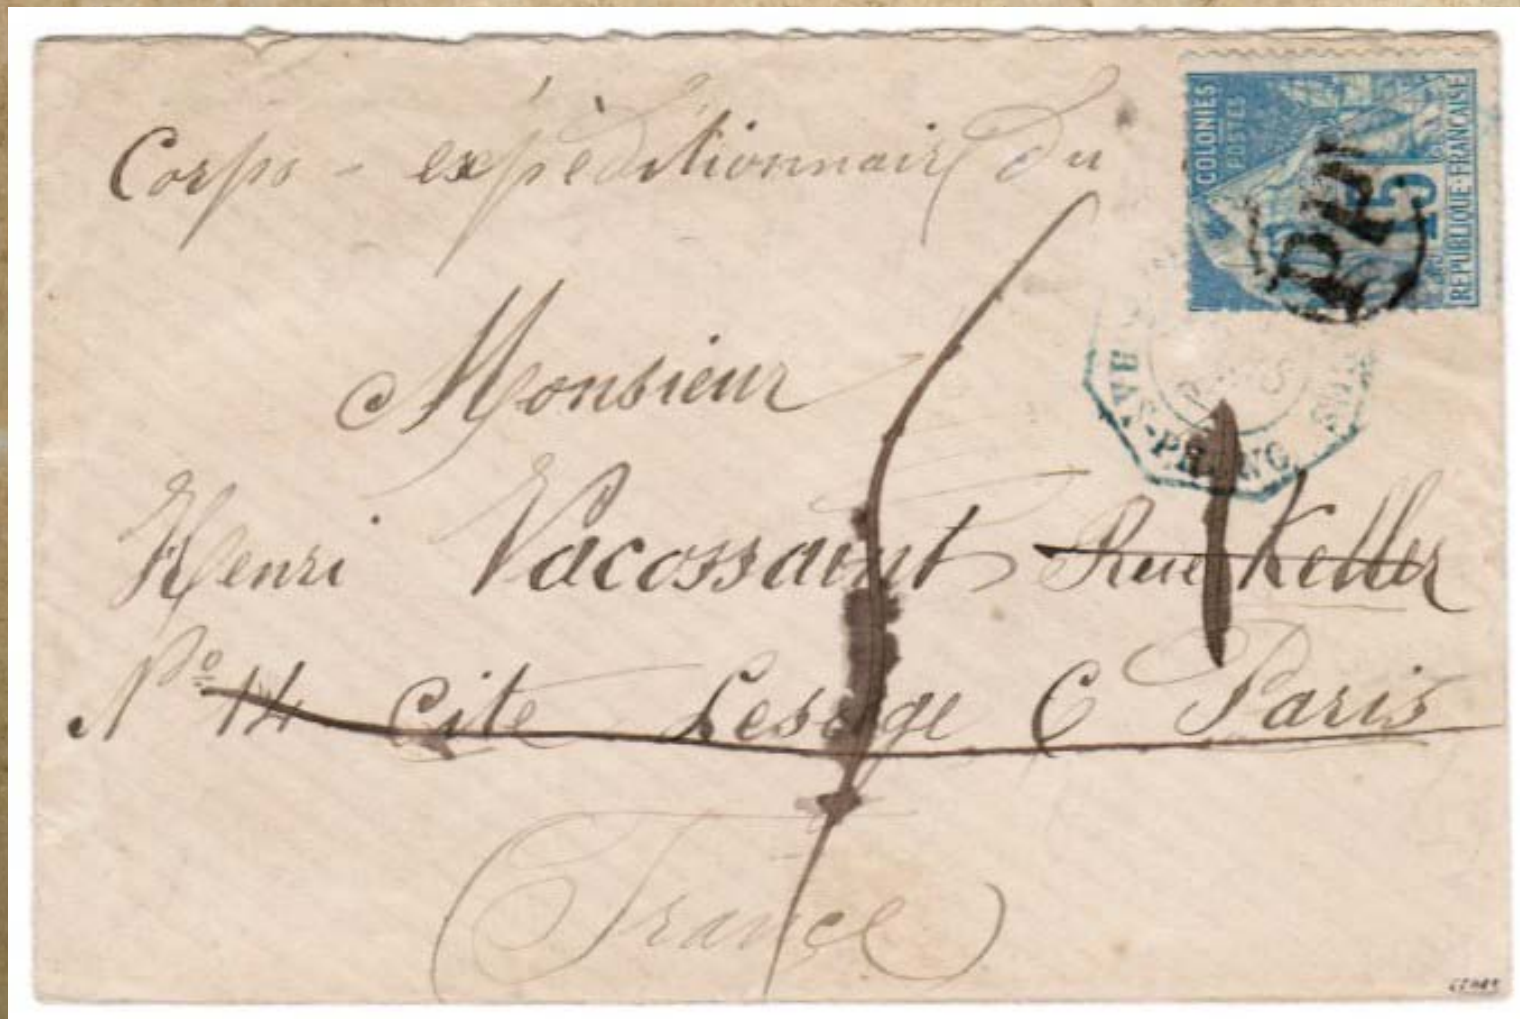 Corps - expéditionnaire du
COLONIES
POSTES
15
REPUBLIQUE-FRANCAISE
PP
Monsieur
Henri Vacossaint Rue Keller
No 14 cite Lesage C Paris
France